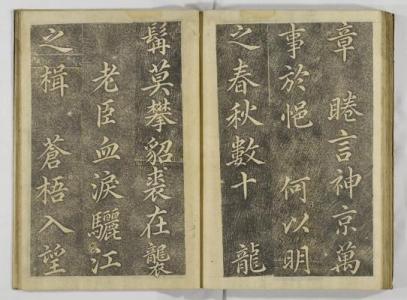 章　睠言神京萬
事於悒　何以明
之春秋數十　龍
髯莫攀貂裘在襲
老臣血淚驪江
之楫　蒼梧入望